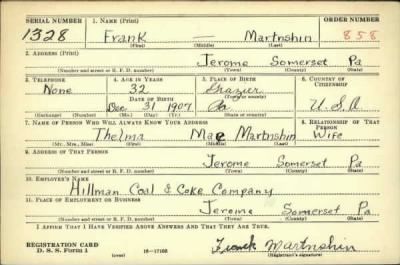 SERIAL NUMBER 1. NAME (Print) ORDER NUMBER
1328 Frank — Martnshin 858
(First) (Middle) (Last)
2. ADDRESS (Print)
Jerome Somerset Pa
(Number and street or R. F. D. number) (Town) (County) (State)
3. TELEPHONE 4. AGE IN YEARS 5. PLACE OF BIRTH 6. COUNTRY OF CITIZENSHIP
None 32 Grazier
DATE OF BIRTH (Town or county)
Dec 31 1907 Pa U.S.A
(Exchange) (Number) (Mo.) (Day) (Yr.) (State or country)
7. NAME OF PERSON WHO WILL ALWAYS KNOW YOUR ADDRESS 8. RELATIONSHIP OF THAT PERSON
Thelma Mae Martnshin Wife
(Mr., Mrs., Miss) (First) (Middle) (Last)
9. ADDRESS OF THAT PERSON
Jerome Somerset Pa
(Number and street or R. F. D. number) (Town) (County) (State)
10. EMPLOYER'S NAME
Hillman Coal & Coke Company
11. PLACE OF EMPLOYMENT OR BUSINESS
Jerome Somerset Pa
(Number and street or R. F. D. number) (Town) (County) (State)
I AFFIRM THAT I HAVE VERIFIED ABOVE ANSWERS AND THAT THEY ARE TRUE.
REGISTRATION CARD
D. S. S. Form 1 (over) Frank Martnshin
(Registrant's signature)